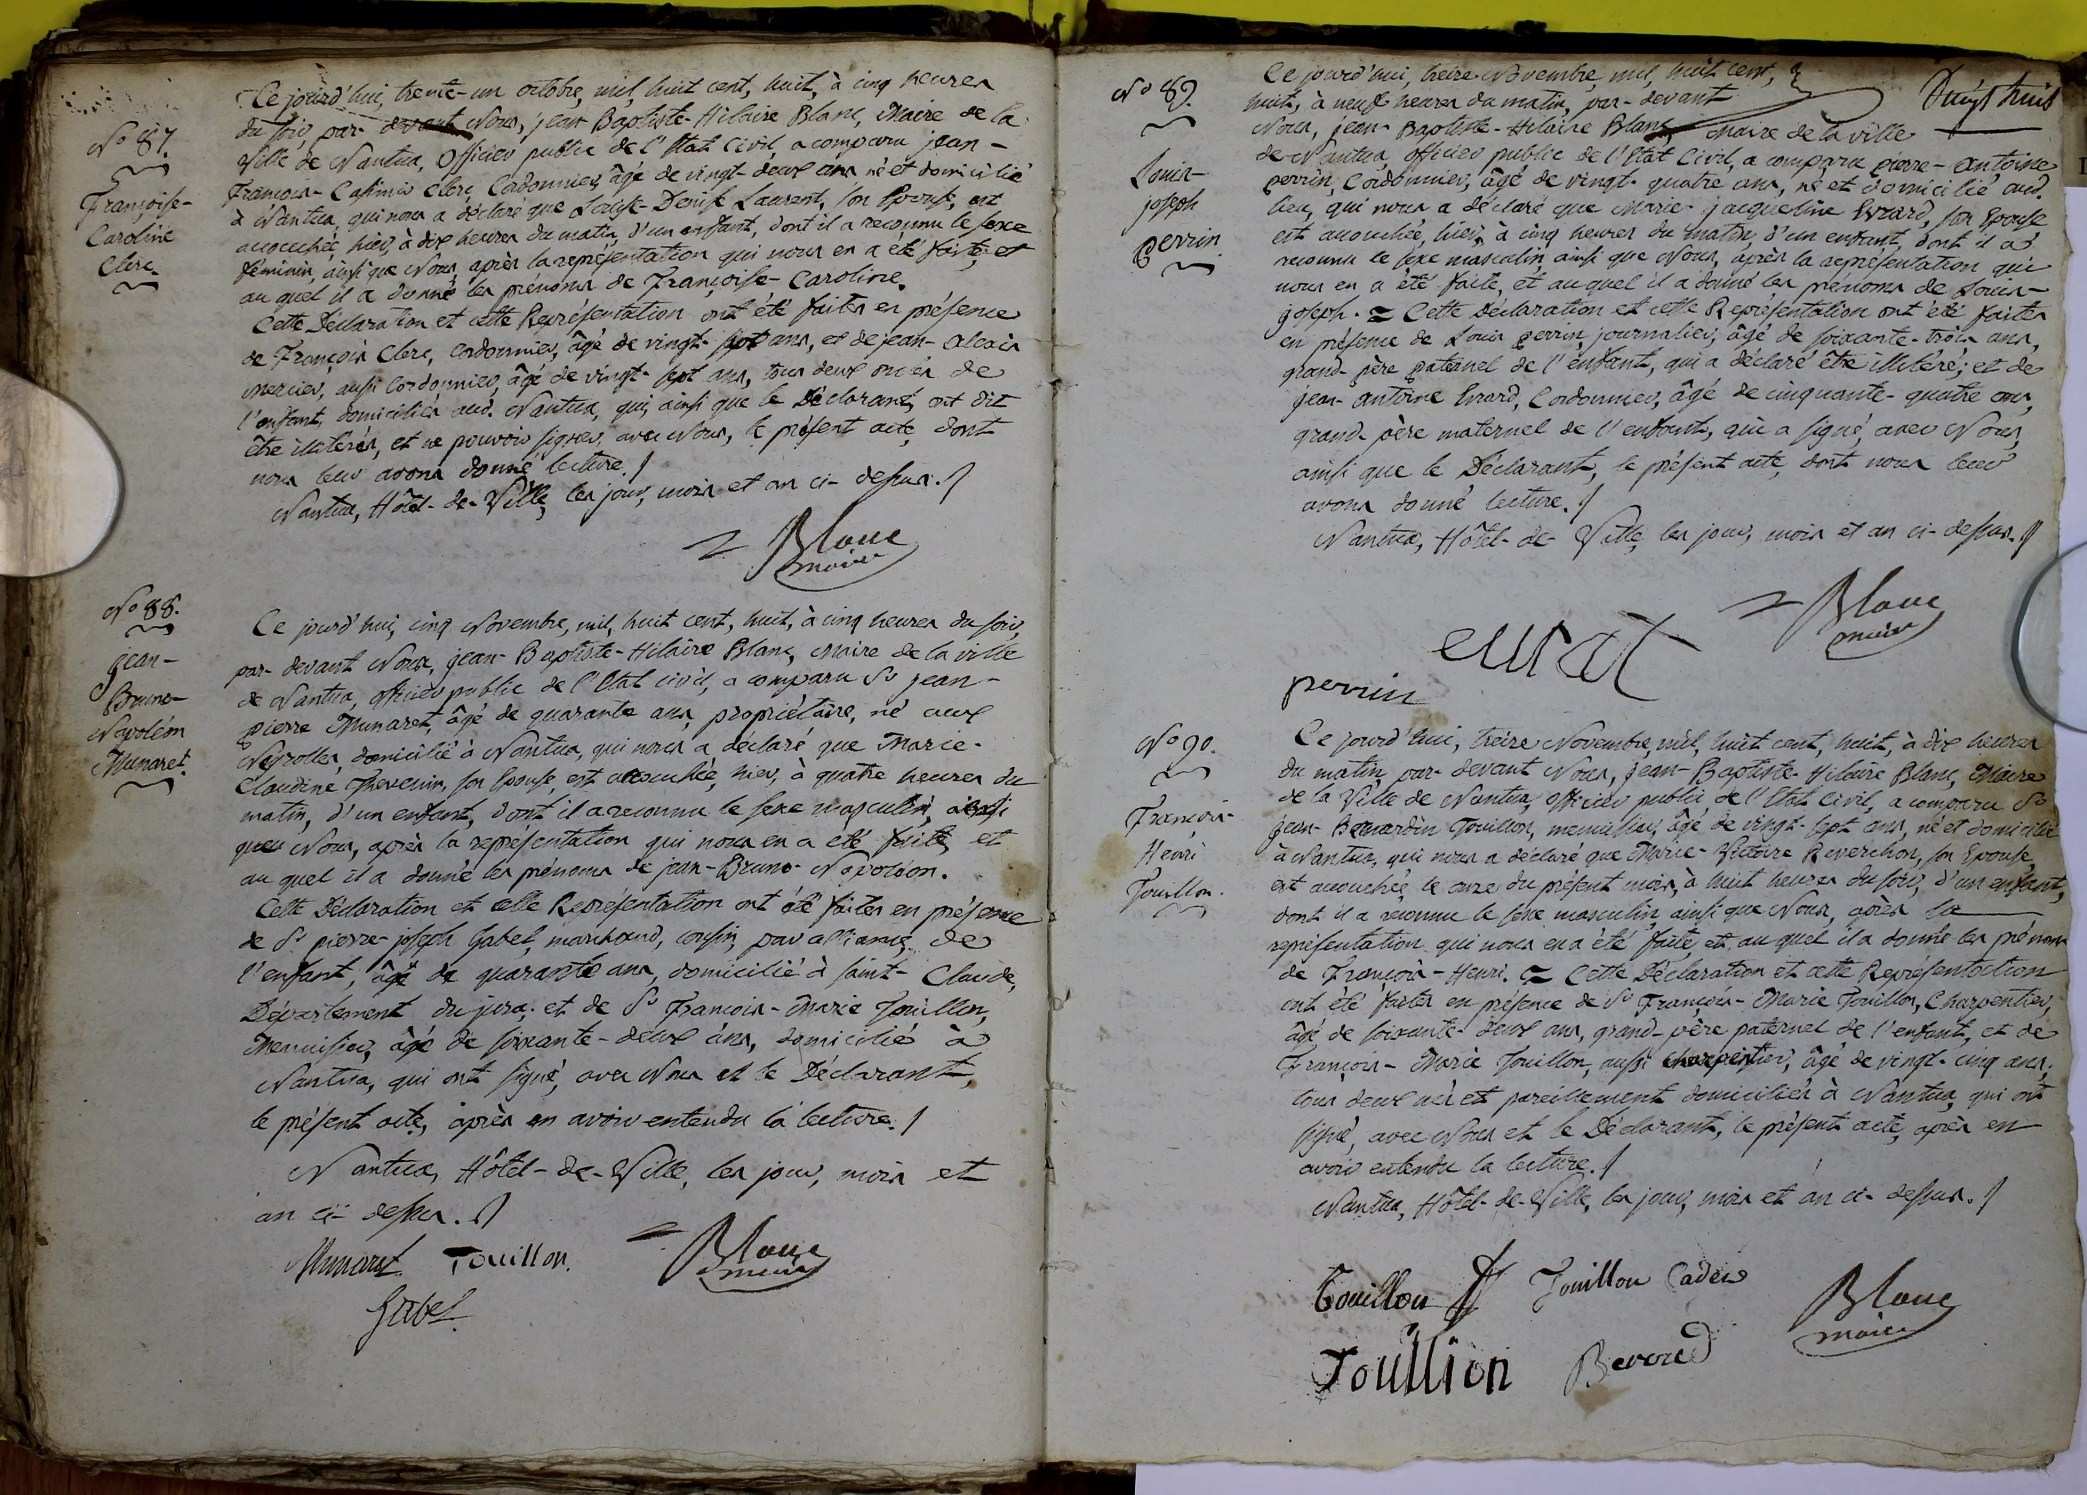 N° 87.
Françoise-
Caroline
Clerc.
Ce jourd'hui, trente-un octobre, mil, huit cent, huit, à cinq heures
du soir, par-devant Nous, jean-Baptiste-Hilaire Blanc, Maire de la
Ville de Nantua, Officier public de l'Etat Civil, a comparu jean-
François-Casimir Clerc, Cordonnier, âgé de vingt-deux ans né et domicilié
à Nantua, qui nous a déclaré que Louise-Denise Laurent, son Epouse, est
accouchée, hier, à dix heures du matin, d'un enfant, dont il a reconnu le sexe
féminin, ainsi que Nous, après la représentation qui nous en a été faite, et
au quel il a donné les prénoms de Françoise-Caroline.
Cette Déclaration et cette Représentation ont été faites en présence
de François Clerc, cordonnier, âgé de vingt-sept ans, et de jean-alexis
mercier, aussi Cordonnier, âgé de vingt-sept ans, tous deux oncles de
l'enfant, domiciliés aud. Nantua, qui, ainsi que le Déclarant, ont dit
être illitérés, et ne pouvoir signer, avec Nous, le présent acte, dont
nous leur avons donné lecture.
Nantua, Hôtel-de-Ville, les jour, mois et an ci-dessus.
Blanc
maire
N° 88.
jean-
Bruno-
Napoléon
Munaret.
Ce jourd'hui, cinq Novembre, mil, huit cent, huit, à cinq heures du soir,
par-devant Nous, jean-Baptiste-Hilaire Blanc, Maire de la ville
de Nantua, officier public de l'Etat civil, a comparu Sr jean-
pierre Munaret, âgé de quarante ans, propriétaire, né aux
Neyrolles, domicilié à Nantua, qui nous a déclaré que Marie-
Claudine Thevenin, son Epouse, est accouchée, hier, à quatre heures du
matin, d'un enfant, dont il a reconnu le sexe masculin, ainsi
que Nous, après la représentation qui nous en a été faite, et
au quel il a donné les prénoms de jean-Bruno-Napoléon.
Cette Déclaration et cette Représentation ont été faites en présence
de Sr pierre-joseph Gabet, marchand, cousin, par alliance, de
l'enfant, âgé de quarante ans, domicilié à Saint-Claude,
Département du jura; et de Sr François-Marie Touillon,
Menuisier, âgé de soixante-deux ans, domicilié à
Nantua, qui ont signé, avec Nous et le Déclarant,
le présent acte, après en avoir entendu la lecture.
Nantua, Hôtel-de-Ville, les jour, mois et
an ci-dessus.
Munaret Touillon. Blanc
maire
Gabet
N° 89.
Louis-
joseph
perrin.
Ce jourd'hui, treize Novembre, mil, huit cent,
huit, à neuf heures du matin, par-devant
Nous, jean-Baptiste-Hilaire Blanc, Maire de la ville
de Nantua, officier public de l'Etat Civil, a comparu pierre-antoine
perrin, Cordonnier, âgé de vingt-quatre ans, né et domicilié aud.
lieu, qui nous a déclaré que Marie-jacqueline Evrard, son Epouse,
est accouchée, hier, à cinq heures du matin, d'un enfant, dont il a
reconnu le sexe masculin ainsi que Nous, après la représentation qui
nous en a été faite, et au quel il a donné les prénoms de Louis-
joseph. = Cette Déclaration et cette Représentation ont été faites
en présence de Louis perrin, journalier, âgé de soixante-trois ans,
grand-père paternel de l'enfant, qui a déclaré être illitéré; et de
jean-antoine Evrard, Cordonnier, âgé de cinquante-quatre ans,
grand-père maternel de l'enfant, qui a signé, avec Nous,
ainsi que le Déclarant, le présent acte, dont nous leur
avons donné lecture.
Nantua, Hôtel-de-Ville, les jour, mois et an ci-dessus.
Blanc
maire
perrin
N° 90.
François-
Henri
Touillon.
Ce jourd'hui, treize Novembre, mil, huit cent, huit, à dix heures
du matin, par-devant Nous, jean-Baptiste-Hilaire Blanc, Maire
de la Ville de Nantua, officier public de l'Etat Civil, a comparu Sr
jean-Bernardin Touillon, menuisier, âgé de vingt-sept ans, né et domicilié
à Nantua, qui nous a déclaré que Marie-Victoire Reverchon, son Epouse,
est accouchée, le onze du présent mois, à huit heures du soir, d'un enfant,
dont il a reconnu le sexe masculin, ainsi que Nous, après la
représentation qui nous en a été faite, et au quel il a donné les prénoms
de François-Henri. = Cette Déclaration et cette Représentation
ont été faites en présence de Sr François-Marie Touillon, Charpentier,
âgé de soixante-deux ans, grand-père paternel de l'enfant, et de
François-Marie Touillon, aussi charpentier, âgé de vingt-cinq ans,
tous deux nés et pareillement domiciliés à Nantua, qui ont
signé, avec Nous et le Déclarant, le présent acte, après en
avoir entendu la lecture.
Nantua, Hôtel-de-Ville, les jour, mois et an ci-dessus.
Touillon Touillon Cadet Blanc
maire
Touillion